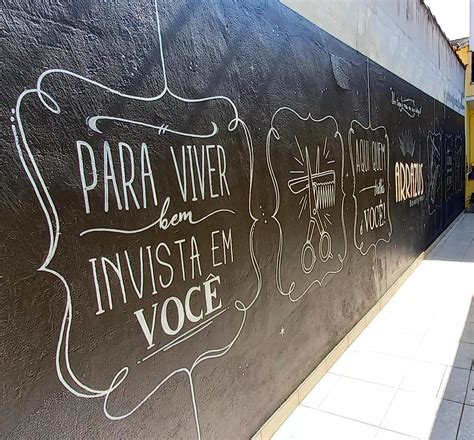 PARA VIVER
bem
INVISTA EM
VOCÊ
AQUI QUEM
é
VOCÊ!
ARRAZUS